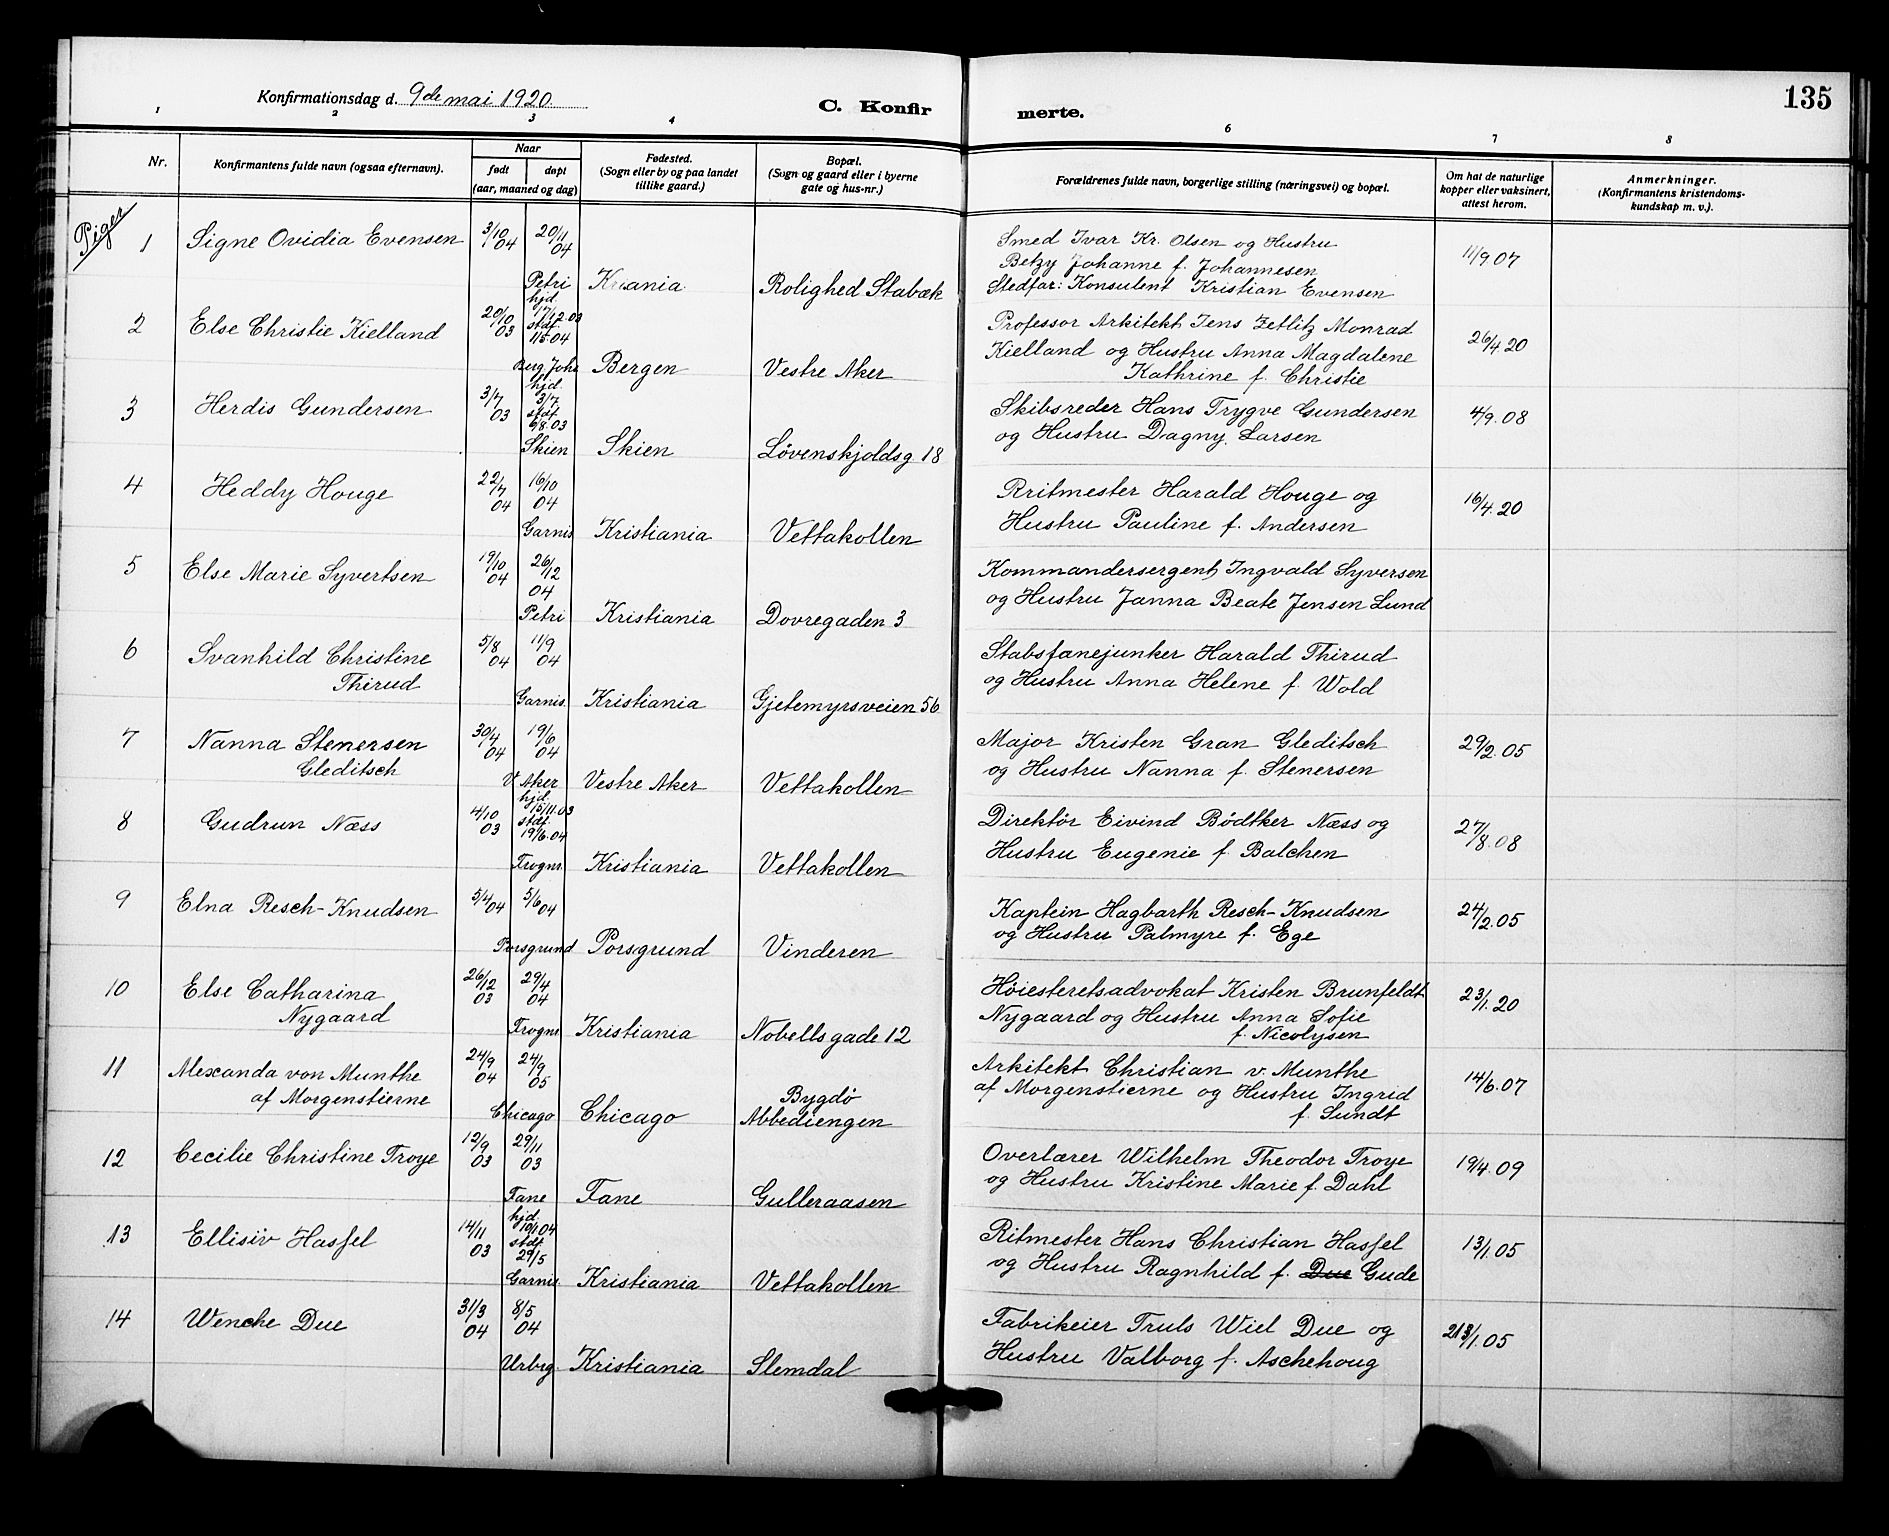 135
Konfirmationsdag d. 9de mai 1920.
C. Konfir merte.
1 2 3 4 6 7 8
Nr.
Konfirmantens fulde navn (ogsaa efternavn).
Naar
født døpt
(aar, maaned og dag)
Fødested.
(Sogn eller by og paa landet
tillike gaard.)
Bopæl.
(Sogn og gaard eller i byerne
gate og hus-nr.)
Forældrenes fulde navn, borgerlige stilling (næringsvei) og bopæl.
Om hat de naturlige
kopper eller vaksinert,
attest herom.
Anmerkninger.
(Konfirmantens kristendoms-
kundskap m. v.).
Piger
1 Signe Ovidia Evensen 3/10 04 20/11 04
Petri Kriania Rolighed Stabæk
Smed Ivar Kr. Olsen og Hustru
Betzy Johanne f. Johannesen
Stedfar: Konsulent Kristian Evensen
11/9 07
2 Else Christie Kielland 20/10 03 hjd. 17/12.03 stdf. 1/5.04
Berg Joh. Bergen Vestre Aker
Professor Arkitekt Jens Zetlitz Monrad
Kielland og Hustru Anna Magdalene
Kathrine f. Christie
26/4.20
3 Herdis Gundersen 3/7 03 hjd. 3/7 stdf 9/8.03
Skien Skien Løvenskjoldsg. 18
Skibsreder Hans Trygve Gundersen
og Hustru Dagny Larsen
4/9.08
4 Heddy Houge 22/7 04 16/10 04
Garnis Kristiania Vettakollen
Rritmester Harald Houge og
Hustru Pauline f. Andersen
16/4.20
5 Else Marie Syvertsen 19/10 04 26/12 04
Petri Kristiania Dovregaden 3
Kommandersergent Ingvald Syversen
og Hustru Janna Beate Jensen Lund
6 Svanhild Christine
Thirud
5/8 04 11/9 04
Garnis. Kristiania Gjetemyrsveien 56
Stabsfanejunker Harald Thirud
og Hustru Anna Helene f. Wold
7 Nanna Stenersen
Gleditsch
30/4 04 19/6 04
V Aker Vestre Aker Vettakollen
Major Kristen Gran Gleditsch
og Hustru Nanna f. Stenersen
29/2.05
8 Gudrun Næss 4/10 03 hjd. 15/11.03 stdf. 19/6.04
Frogner Kristiania Vettakollen
Direktør Eivind Bødtker Næss og
Hustru Eugenie f. Balchen
27/8.08
9 Elna Resch-Knudsen 5/4 04 5/6 04
Porsgrund Porsgrund Vinderen
Kaptein Hagbarth Resch-Knudsen
og Hustru Palmyre f. Ege
24/2.05
10 Else Catharina
Nygaard
26/12 03 29/4 04
Frogner Kristiania Nobellsgade 12
Høiesteretsadvokat Kristen Brunfeldt
Nygaard og Hustru Anna Sofie
f. Nicolysen
23/1.20
11 Alexanda von Munthe
af Morgenstierne
24/9 04 24/9 05
Chicago Chicago Bygdø
Abbediengen
Arkitekt Christian v. Munthe
af Morgenstierne og Hustru Ingrid
f. Sundt
14/6.07
12 Cecilie Christine Troye 12/9 03 29/11 03
Fane Fane Gulleraasen
Overlærer Wilhelm Theodor Troye
og Hustru Kristine Marie f. Dahl
19/4.09
13 Ellisiv Hassel 14/11 03 hjd. 10/1.04 stdf 29/5
Garnis. Kristiania Vettakollen
Ritmester Hans Christian Hassel
og Hustru Ragnhild f. Due Gude
13/1.05
14 Wenche Due 31/3 04 8/5 04
Urbrg. Kristiania Slemdal
Fabrikeier Truls Wiel Due og
Hustru Valborg f. Aschehoug